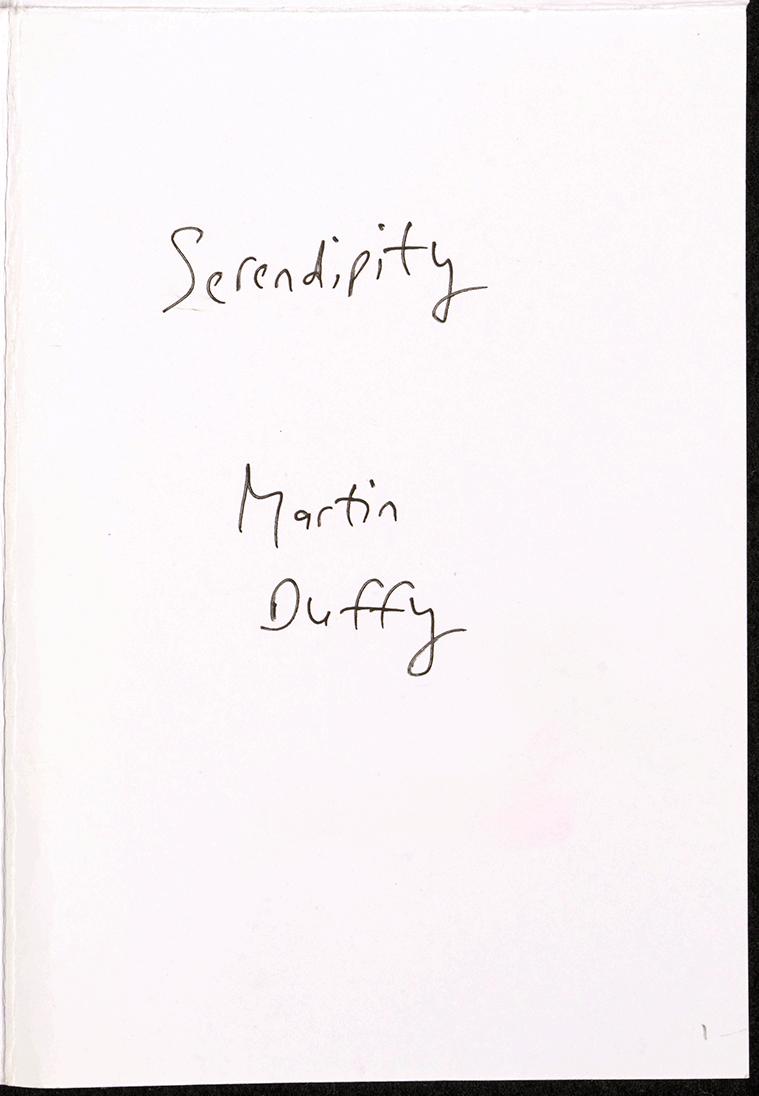 Serendipity
Martin
Duffy
1